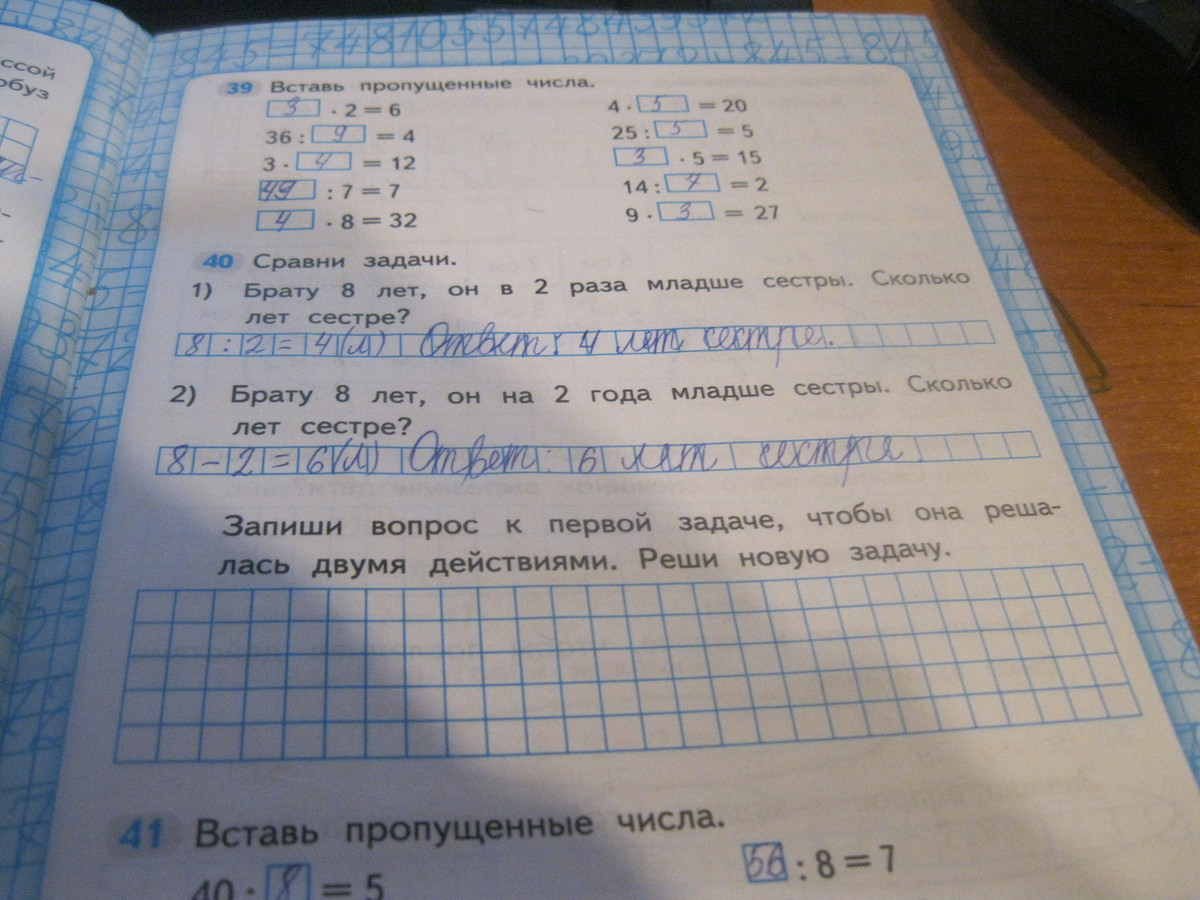 845=7481055748
845-845
ссой
обуз
39 Вставь пропущенные числа.
3 · 2 = 6 4 · 5 = 20
36 : 9 = 4 25 : 5 = 5
3 · 4 = 12 3 · 5 = 15
49 : 7 = 7 14 : 7 = 2
4 · 8 = 32 9 · 3 = 27
40 Сравни задачи.
1) Брату 8 лет, он в 2 раза младше сестры. Сколько
лет сестре?
8 : 2 = 4 (л) Ответ: 4 лет сестре.
2) Брату 8 лет, он на 2 года младше сестры. Сколько
лет сестре?
8 - 2 = 6 (л) Ответ: 6 лет сестре
Запиши вопрос к первой задаче, чтобы она реша-
лась двумя действиями. Реши новую задачу.
41 Вставь пропущенные числа.
40 : 8 = 5 56 : 8 = 7